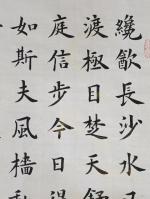 纔㱃長沙水
渡極目楚天舒
庭信步今日得
如斯夫風檣